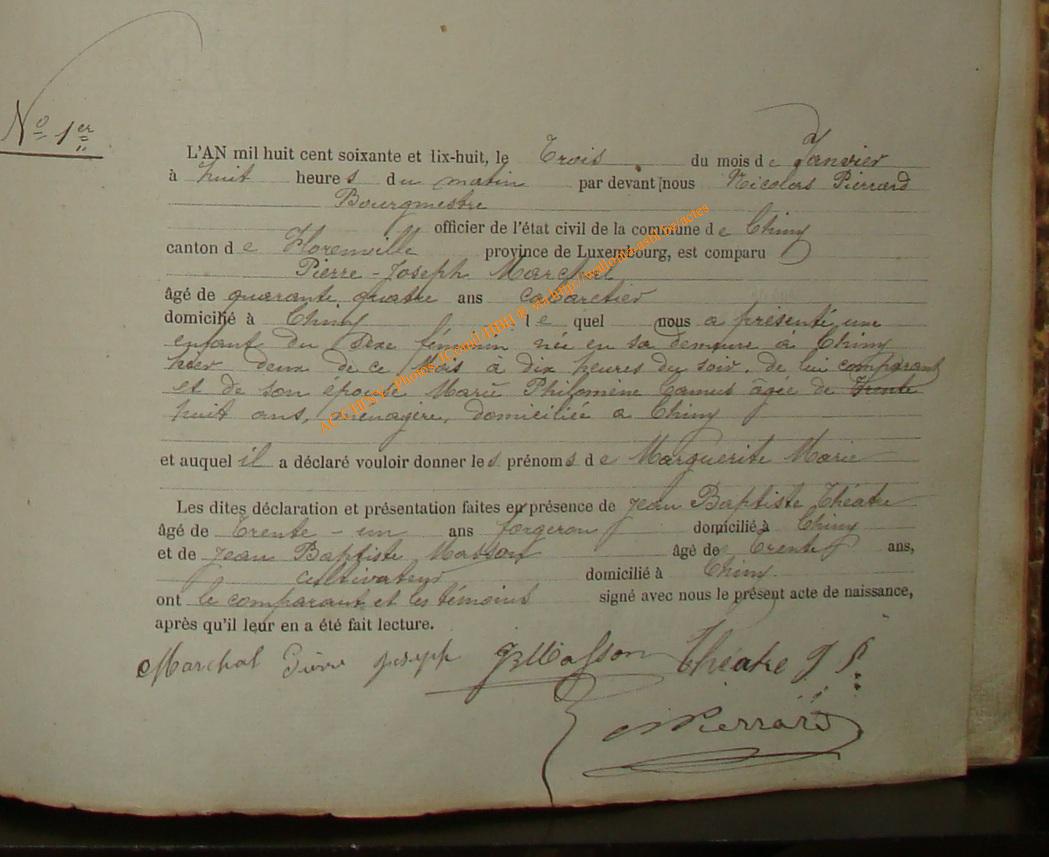 N° 1er
L'AN mil huit cent soixante et dix-huit, le Trois du mois de Janvier
à huit heures du matin par devant nous Nicolas Pierrard
Bourgmestre
officier de l'état civil de la commune de Chiny
canton de Florenville province de Luxembourg, est comparu
Pierre-Joseph Marchal
âgé de quarante quatre ans cabaretier
domicilié à Chiny lequel nous a présenté une
enfant du sexe féminin née en sa demeure à Chiny
hier deux de ce mois à dix heures du soir, de lui comparant
et de son épouse Marie Philomène Camus âgée de Trente
huit ans, ménagère, domiciliée à Chiny
et auquel il a déclaré vouloir donner les prénoms de Marguerite Marie
Les dites déclaration et présentation faites en présence de Jean Baptiste Théatre
âgé de Trente-un ans forgeron domicilié à Chiny
et de Jean Baptiste Masson âgé de Trente ans,
cultivateur domicilié à Chiny
ont le comparant et les témoins signé avec nous le présent acte de naissance,
après qu'il leur en a été fait lecture.
Marchal Pierre joseph JBMasson Théatre J B
N Pierrard